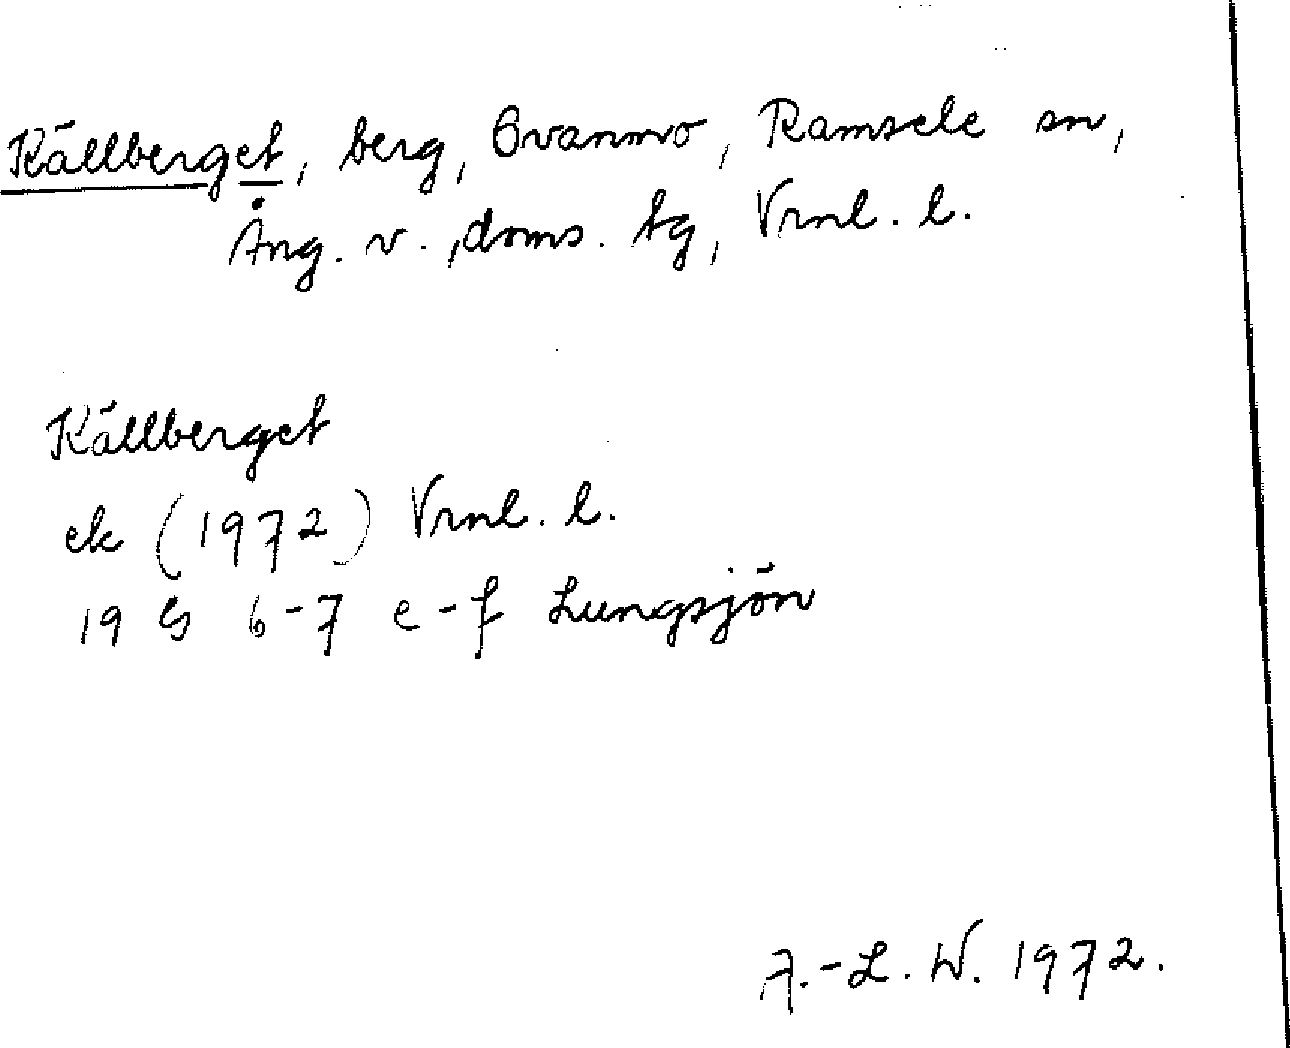 Källberget, berg, Ovanmo, Ramsele sn,
Ång. v., doms. tg, Vrnl. l.
Källberget
ek (1972) Vrnl. l.
19 G 6-7 e-f Lungsjön
A.-L. W. 1972.